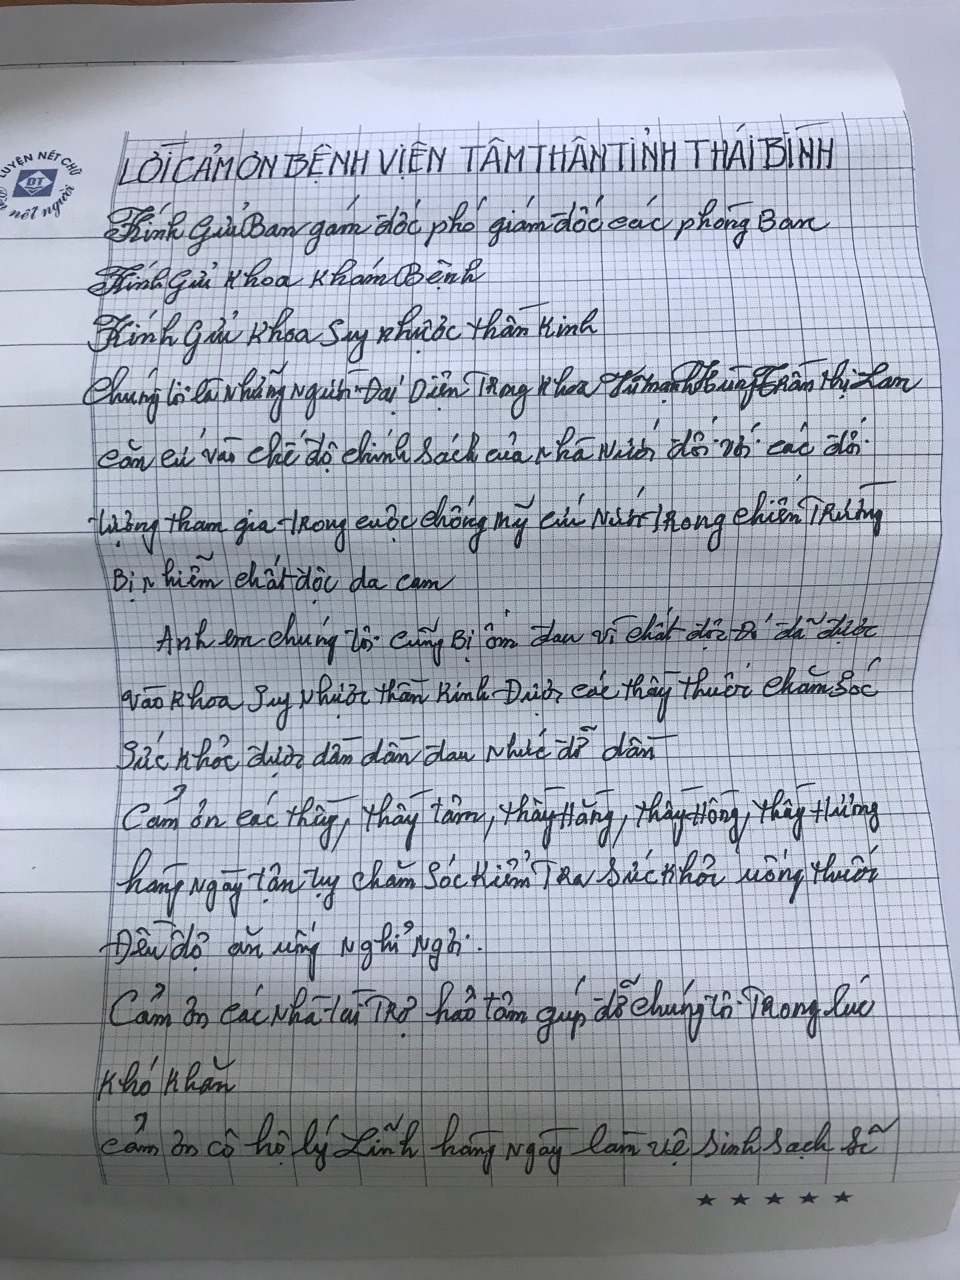 LUYỆN NÉT CHỮ
ĐT
nết người
LỜI CẢM ƠN BỆNH VIỆN TÂM THẦN TỈNH THÁI BÌNH
Kính Gửi Ban gám đốc phó giám đốc các phòng Ban
Kính Gửi Khoa Khám Bệnh
Kính Gửi Khoa Suy Nhược thần Kinh
Chúng tôi là Những Người Đại Diện Trong Khoa mạnh Hùng Trần Thị Lam
căn cứ vào chế độ chính sách của nhà Nước đối với các đối
tượng tham gia trong cuộc chống Mỹ cứu Nước trong chiến Trường
Bị nhiễm chất độc da cam
Anh em chúng tôi cũng Bị ốm đau vì chất độc đó đã được
vào Khoa Suy Nhược thần Kinh Được các thầy thuốc chăm Sóc
Sức Khỏe được dần dần đau Nhức đỡ dần
Cảm ơn các thầy, thầy tâm, thầy Hằng, thầy Hồng, thầy Hương
hàng Ngày tận tụy chăm Sóc Kiểm Tra Sức Khỏe uống thuốc
Đều độ ăn uống Nghỉ Ngơi.
Cảm ơn các Nhà tài Trợ hảo tâm giúp đỡ chúng tôi Trong lúc
Khó Khăn
cảm ơn cô hộ lý Lĩnh hàng Ngày làm vệ Sinh Sạch Sẽ